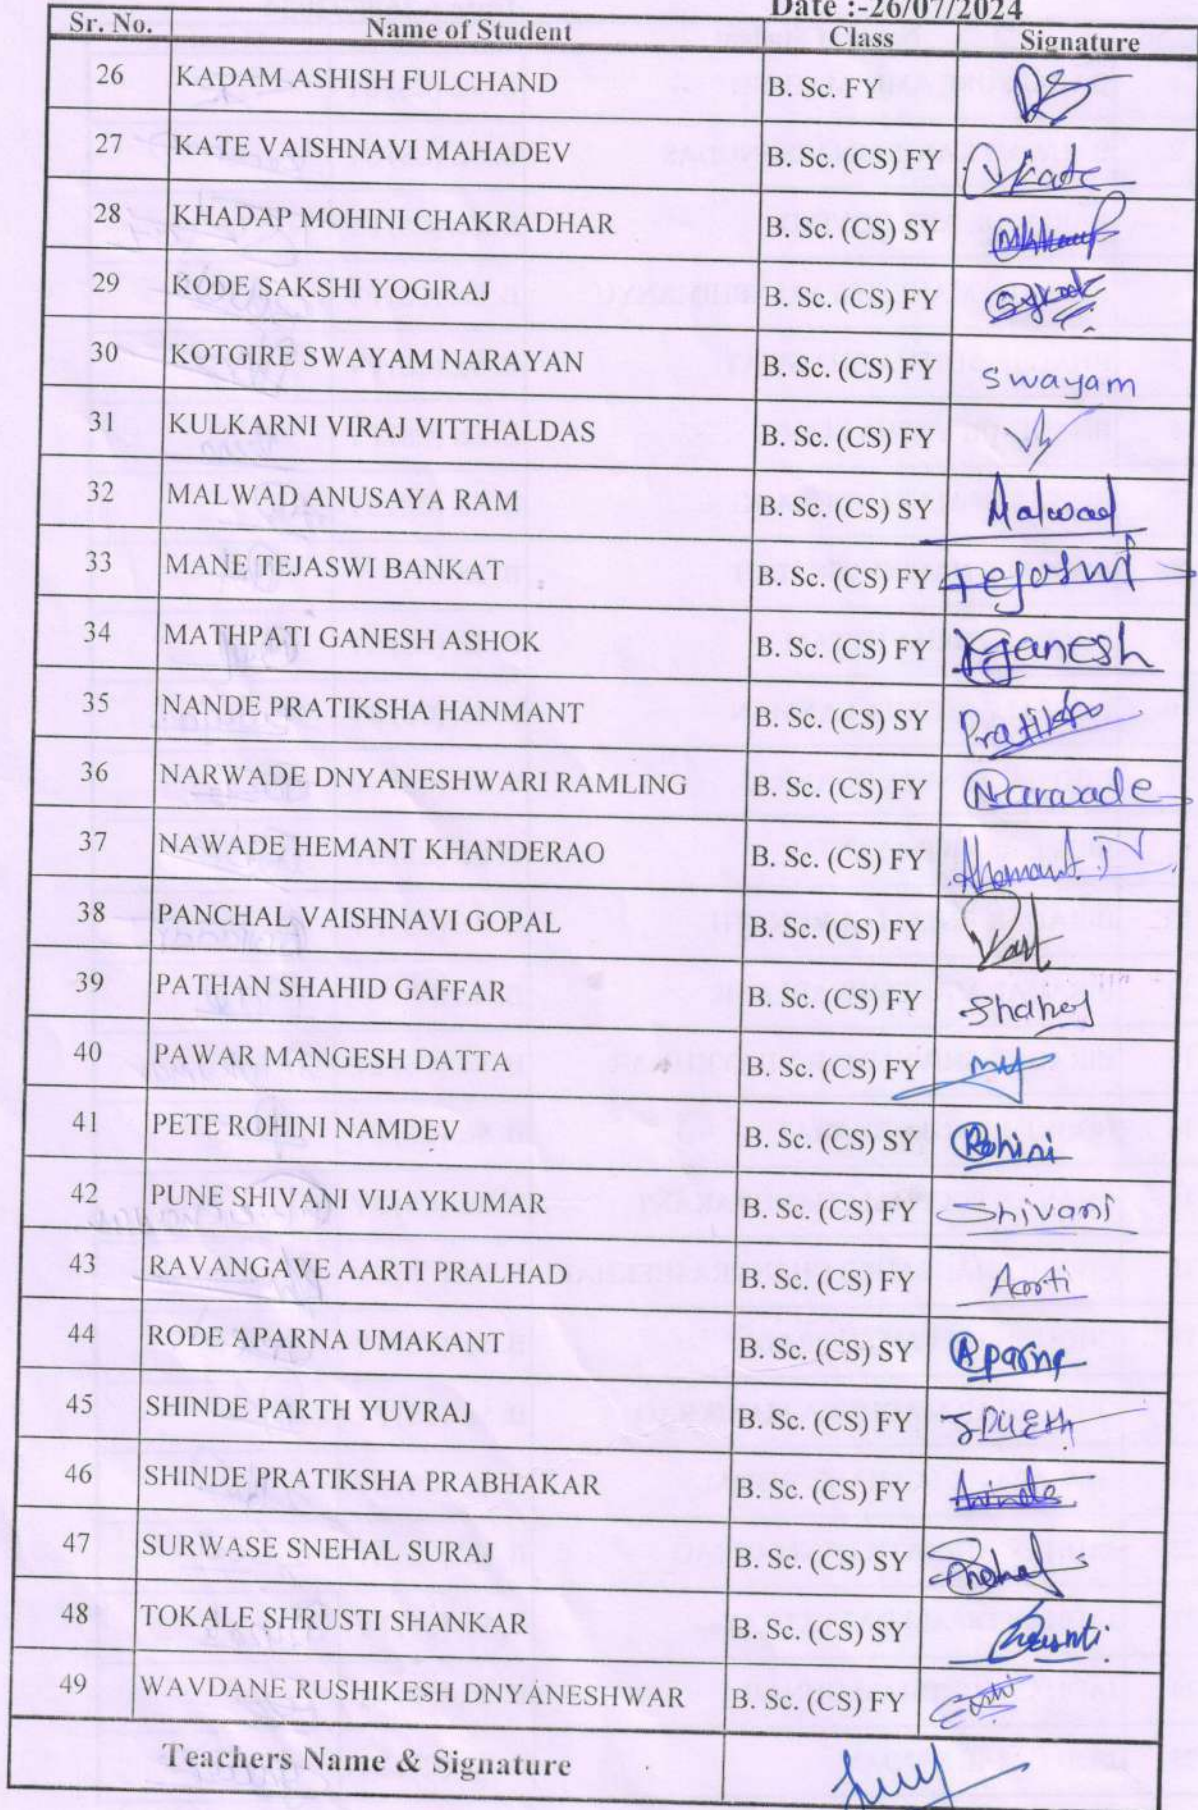 Date :-26/07/2024
Sr. No. Name of Student Class Signature
26 KADAM ASHISH FULCHAND B. Sc. FY
27 KATE VAISHNAVI MAHADEV B. Sc. (CS) FY Vkate
28 KHADAP MOHINI CHAKRADHAR B. Sc. (CS) SY
29 KODE SAKSHI YOGIRAJ B. Sc. (CS) FY
30 KOTGIRE SWAYAM NARAYAN B. Sc. (CS) FY swayam
31 KULKARNI VIRAJ VITTHALDAS B. Sc. (CS) FY
32 MALWAD ANUSAYA RAM B. Sc. (CS) SY Malwad
33 MANE TEJASWI BANKAT B. Sc. (CS) FY Tejaswi
34 MATHPATI GANESH ASHOK B. Sc. (CS) FY Ganesh
35 NANDE PRATIKSHA HANMANT B. Sc. (CS) SY
36 NARWADE DNYANESHWARI RAMLING B. Sc. (CS) FY Narwade
37 NAWADE HEMANT KHANDERAO B. Sc. (CS) FY
38 PANCHAL VAISHNAVI GOPAL B. Sc. (CS) FY
39 PATHAN SHAHID GAFFAR B. Sc. (CS) FY
40 PAWAR MANGESH DATTA B. Sc. (CS) FY
41 PETE ROHINI NAMDEV B. Sc. (CS) SY Rohini
42 PUNE SHIVANI VIJAYKUMAR B. Sc. (CS) FY Shivani
43 RAVANGAVE AARTI PRALHAD B. Sc. (CS) FY Aarti
44 RODE APARNA UMAKANT B. Sc. (CS) SY Aparna
45 SHINDE PARTH YUVRAJ B. Sc. (CS) FY
46 SHINDE PRATIKSHA PRABHAKAR B. Sc. (CS) FY
47 SURWASE SNEHAL SURAJ B. Sc. (CS) SY Snehal
48 TOKALE SHRUSTI SHANKAR B. Sc. (CS) SY
49 WAVDANE RUSHIKESH DNYANESHWAR B. Sc. (CS) FY
Teachers Name & Signature